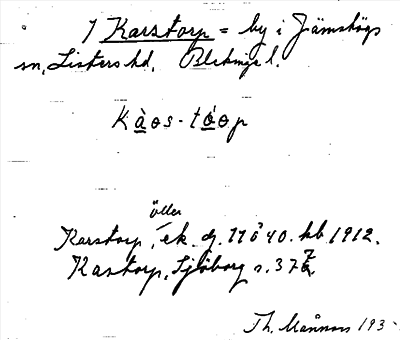 1 Karstorp = by i Jämshögs
sn, Listers hd, Blekinge l.
Kàos-tóop
öller
Karstorp, ek. g. 11 ö 40. hb 1912.
Kastorp, Sjöborg s. 377
Th. Månsson 193